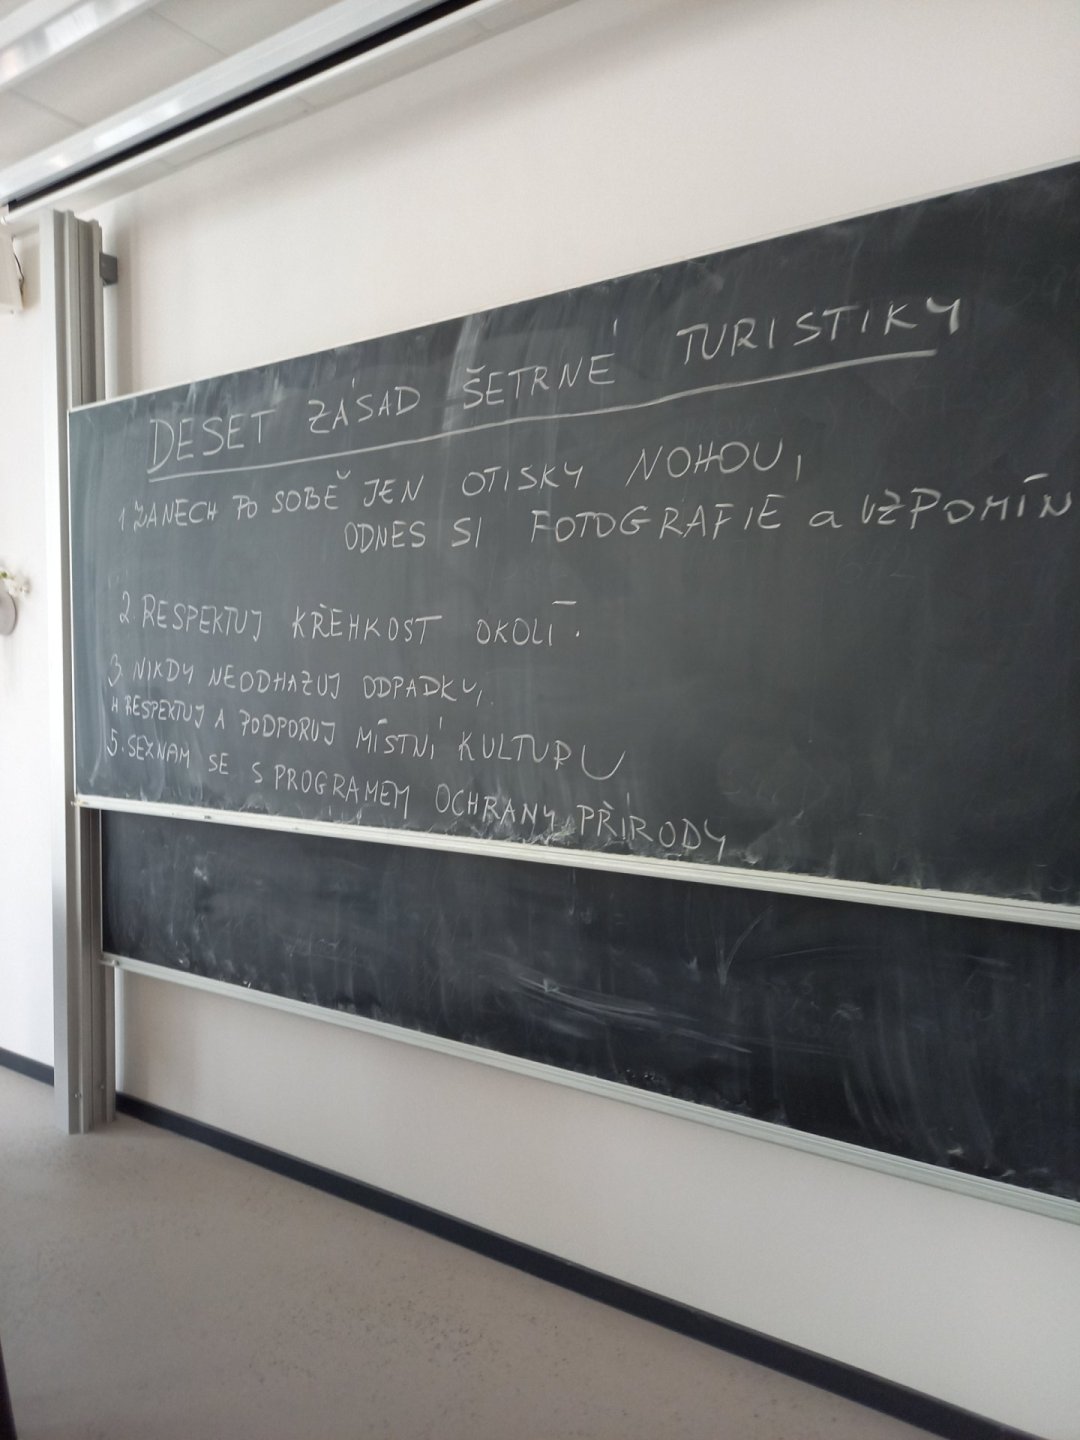 DESET ZÁSAD ŠETRNÉ TURISTIKY
1 ZANECH PO SOBĚ JEN OTISKY NOHOU,
ODNES SI FOTOGRAFIE a VZPOMÍN
2. RESPEKTUJ KŘEHKOST OKOLÍ.
3. NIKDY NEODHAZUJ ODPADKY,
4 RESPEKTUJ A PODPORUJ MÍSTNÍ KULTURU
5. SEZNAM SE S PROGRAMEM OCHRANY PŘÍRODY